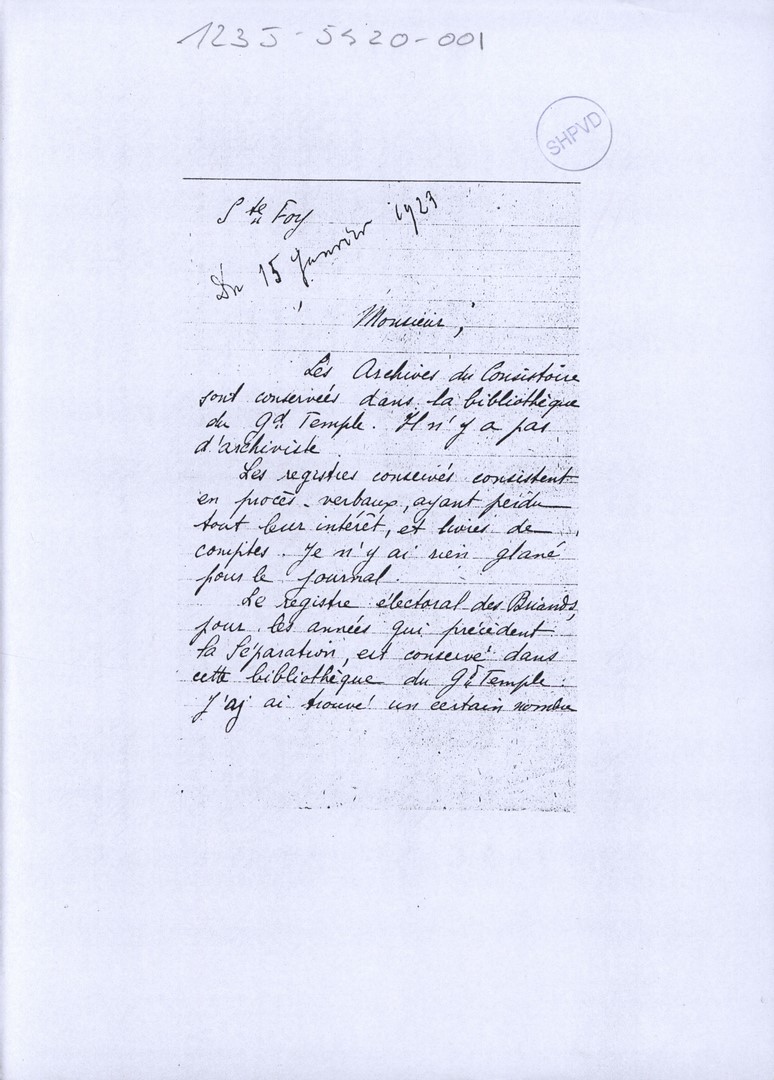 123J-5420-001
SHPVD
Ste Foy
Du 15 Janvier 1923
Monsieur,
Les Archives du Consistoire
sont conservées dans la bibliothèque
du Gd Temple. Il n'y a pas
d'archiviste
Les registres conservés consistent
en procès-verbaux, ayant perdu
tout leur intérêt, et livres de
comptes. Je n'y ai rien glané
pour le journal.
Le registre électoral des Briands,
pour les années qui précèdent
la Séparation, est conservé dans
cette bibliothèque du Gd Temple.
J'y ai trouvé un certain nombre